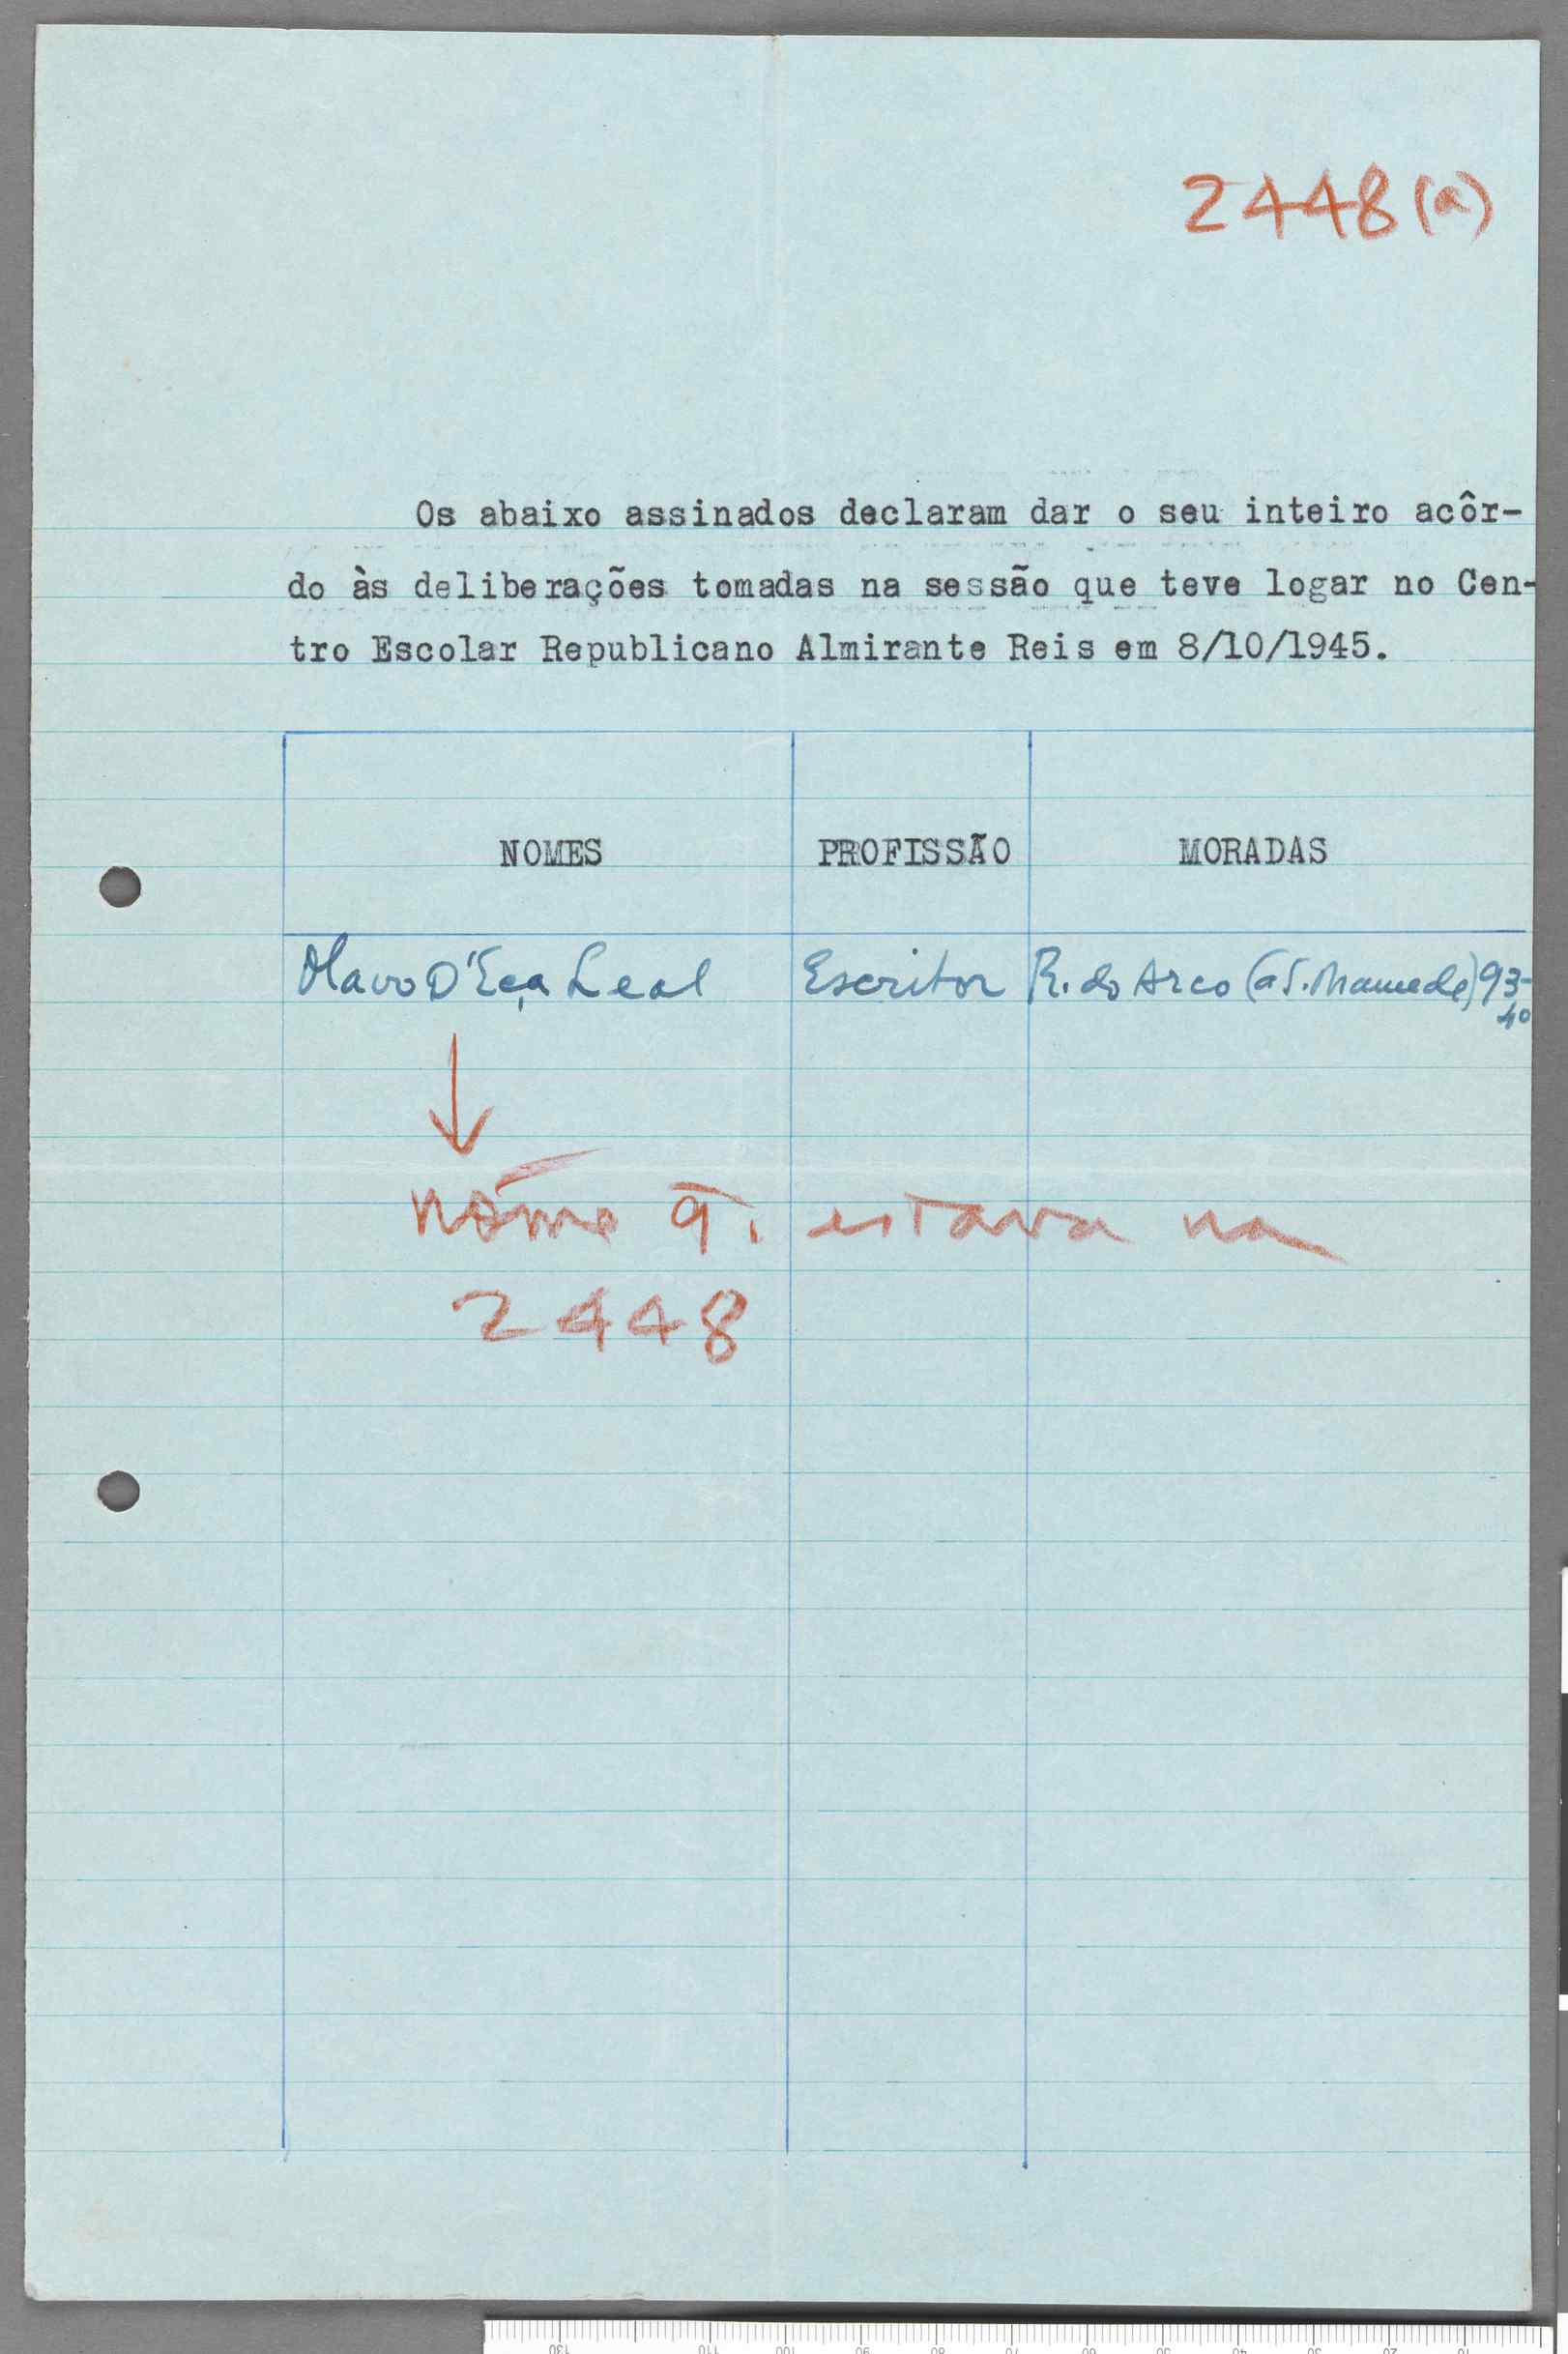 2448 (a)
Os abaixo assinados declaram dar o seu inteiro acôr-
do às deliberações tomadas na sessão que teve logar no Cen-
tro Escolar Republicano Almirante Reis em 8/10/1945.
NOMES PROFISSÃO MORADAS
Olavo D'Eça Leal Escritor R. do Arco (a S. Mamede) 93-
4º
nome q. estava na
2448
130 110 100 90 80 70 60 50 40 30 20 10